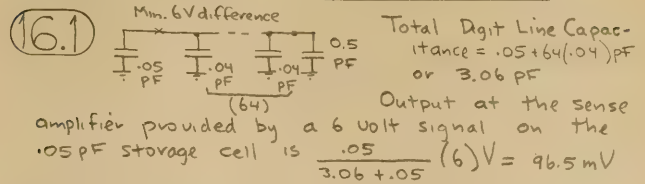 16.1
Min. 6V difference
.05 PF
.04 PF
.04 PF
0.5 PF
(64)
Total Digit Line Capac-
itance = .05+64(.04)pF
or 3.06 pF
Output at the sense
amplifier provided by a 6 volt signal on the
.05 PF storage cell is .05 / 3.06 + .05 (6)V = 96.5 mV